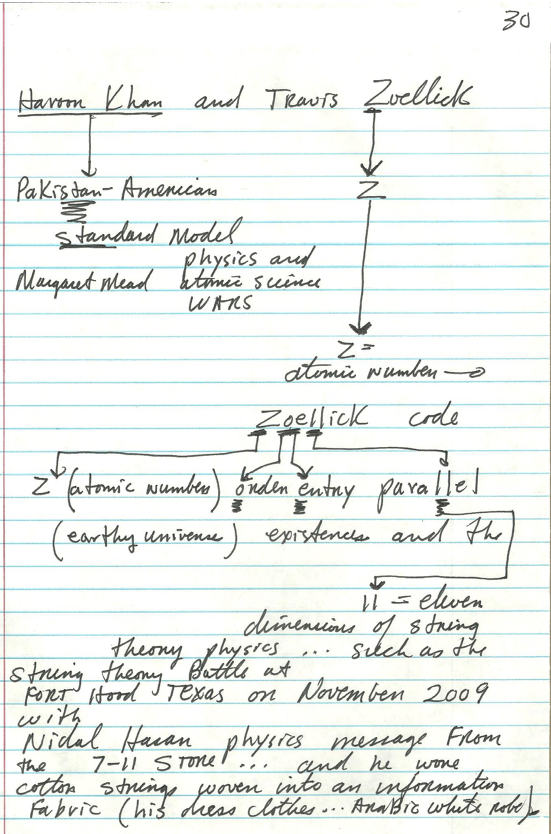 30
Haroon Khan and Travis Zoellick
Pakistan-American Z
standard Model
physics and
Margaret Mead atomic science
WARS
Z =
atomic number
Zoellick code
Z (atomic number) order entry parallel
(earthy universe) existences and the
11 = eleven
dimensions of string
theory physics ... such as the
string theory Battle at
FORT Hood TEXAS on November 2009
with
Nidal Hasan physics message From
the 7-11 STORE ... and he wore
cotton strings woven into an information
Fabric (his dress clothes ... Arabic white robe)